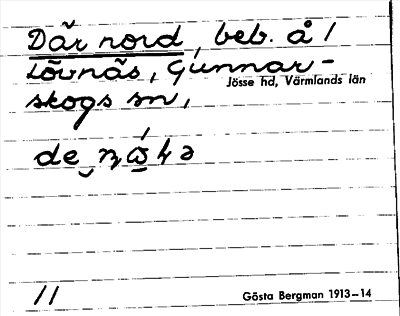 Där nord, beb. å /
Lövnäs, Gunnar-
Jösse hd, Värmlands län
skogs sn,
11
Gösta Bergman 1913–14